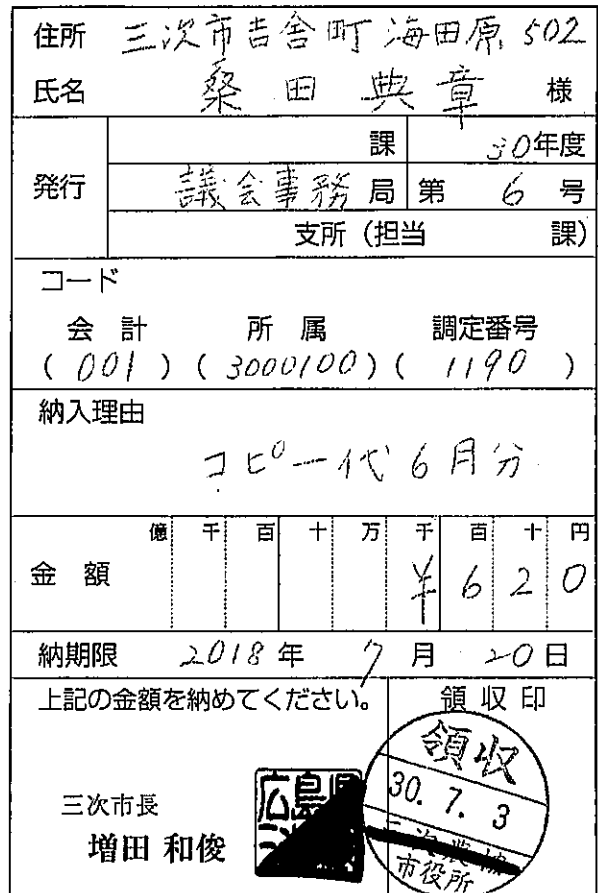 住所 三次市吉舎町海田原502
氏名 桑田典章 様
発行
課 30年度
議会事務局 第 6 号
支所(担当 課)
コード
会計 所属 調定番号
(001)(3000100)(1190)
納入理由
コピー代6月分
億 千 百 十 万 千 百 十 円
金額 ¥620
納期限 2018年 7月 20日
上記の金額を納めてください。
領収印
三次市長
増田 和俊
広島県
領収
30. 7. 3
市役所